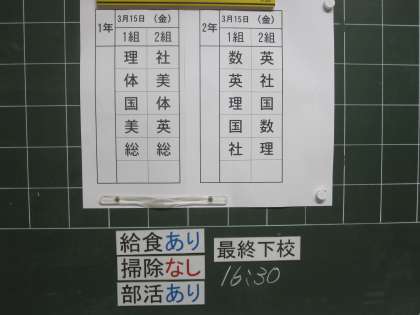 1年 3月15日 (金)
1組 2組
理 社
体 美
国 体
美 英
総 総
2年 3月15日 (金)
1組 2組
数 英
英 社
理 国
国 数
社 理
給食あり
掃除なし
部活あり
最終下校
16:30